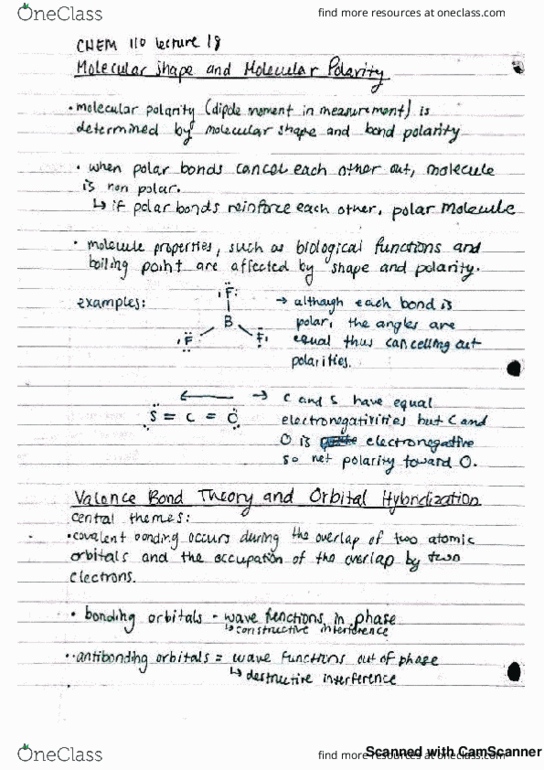 OneClass
find more resources at oneclass.com
CHEM 110 lecture 18
Molecular Shape and Molecular Polarity
• molecular polarity (dipole moment in measurement) is
determined by molecular shape and bond polarity
• when polar bonds cancel each other out, molecule
is non polar.
↳ if polar bonds reinforce each other, polar molecule
• molecule properties, such as biological functions and
boiling point are affected by shape and polarity.
examples:
F
B
F F
→ although each bond is
polar, the angles are
equal thus cancelling out
polarities.
S = C = O
→ C and S have equal
electronegativities but C and
O is electronegative
so net polarity toward O.
Valence Bond Theory and Orbital Hybridization
central themes:
• covalent bonding occurs during the overlap of two atomic
orbitals and the occupation of the overlap by two
electrons.
• bonding orbitals - wave functions in phase
↳ constructive interference
• antibonding orbitals = wave functions out of phase
↳ destructive interference
OneClass
find more resources at oneclass.com
Scanned with CamScanner